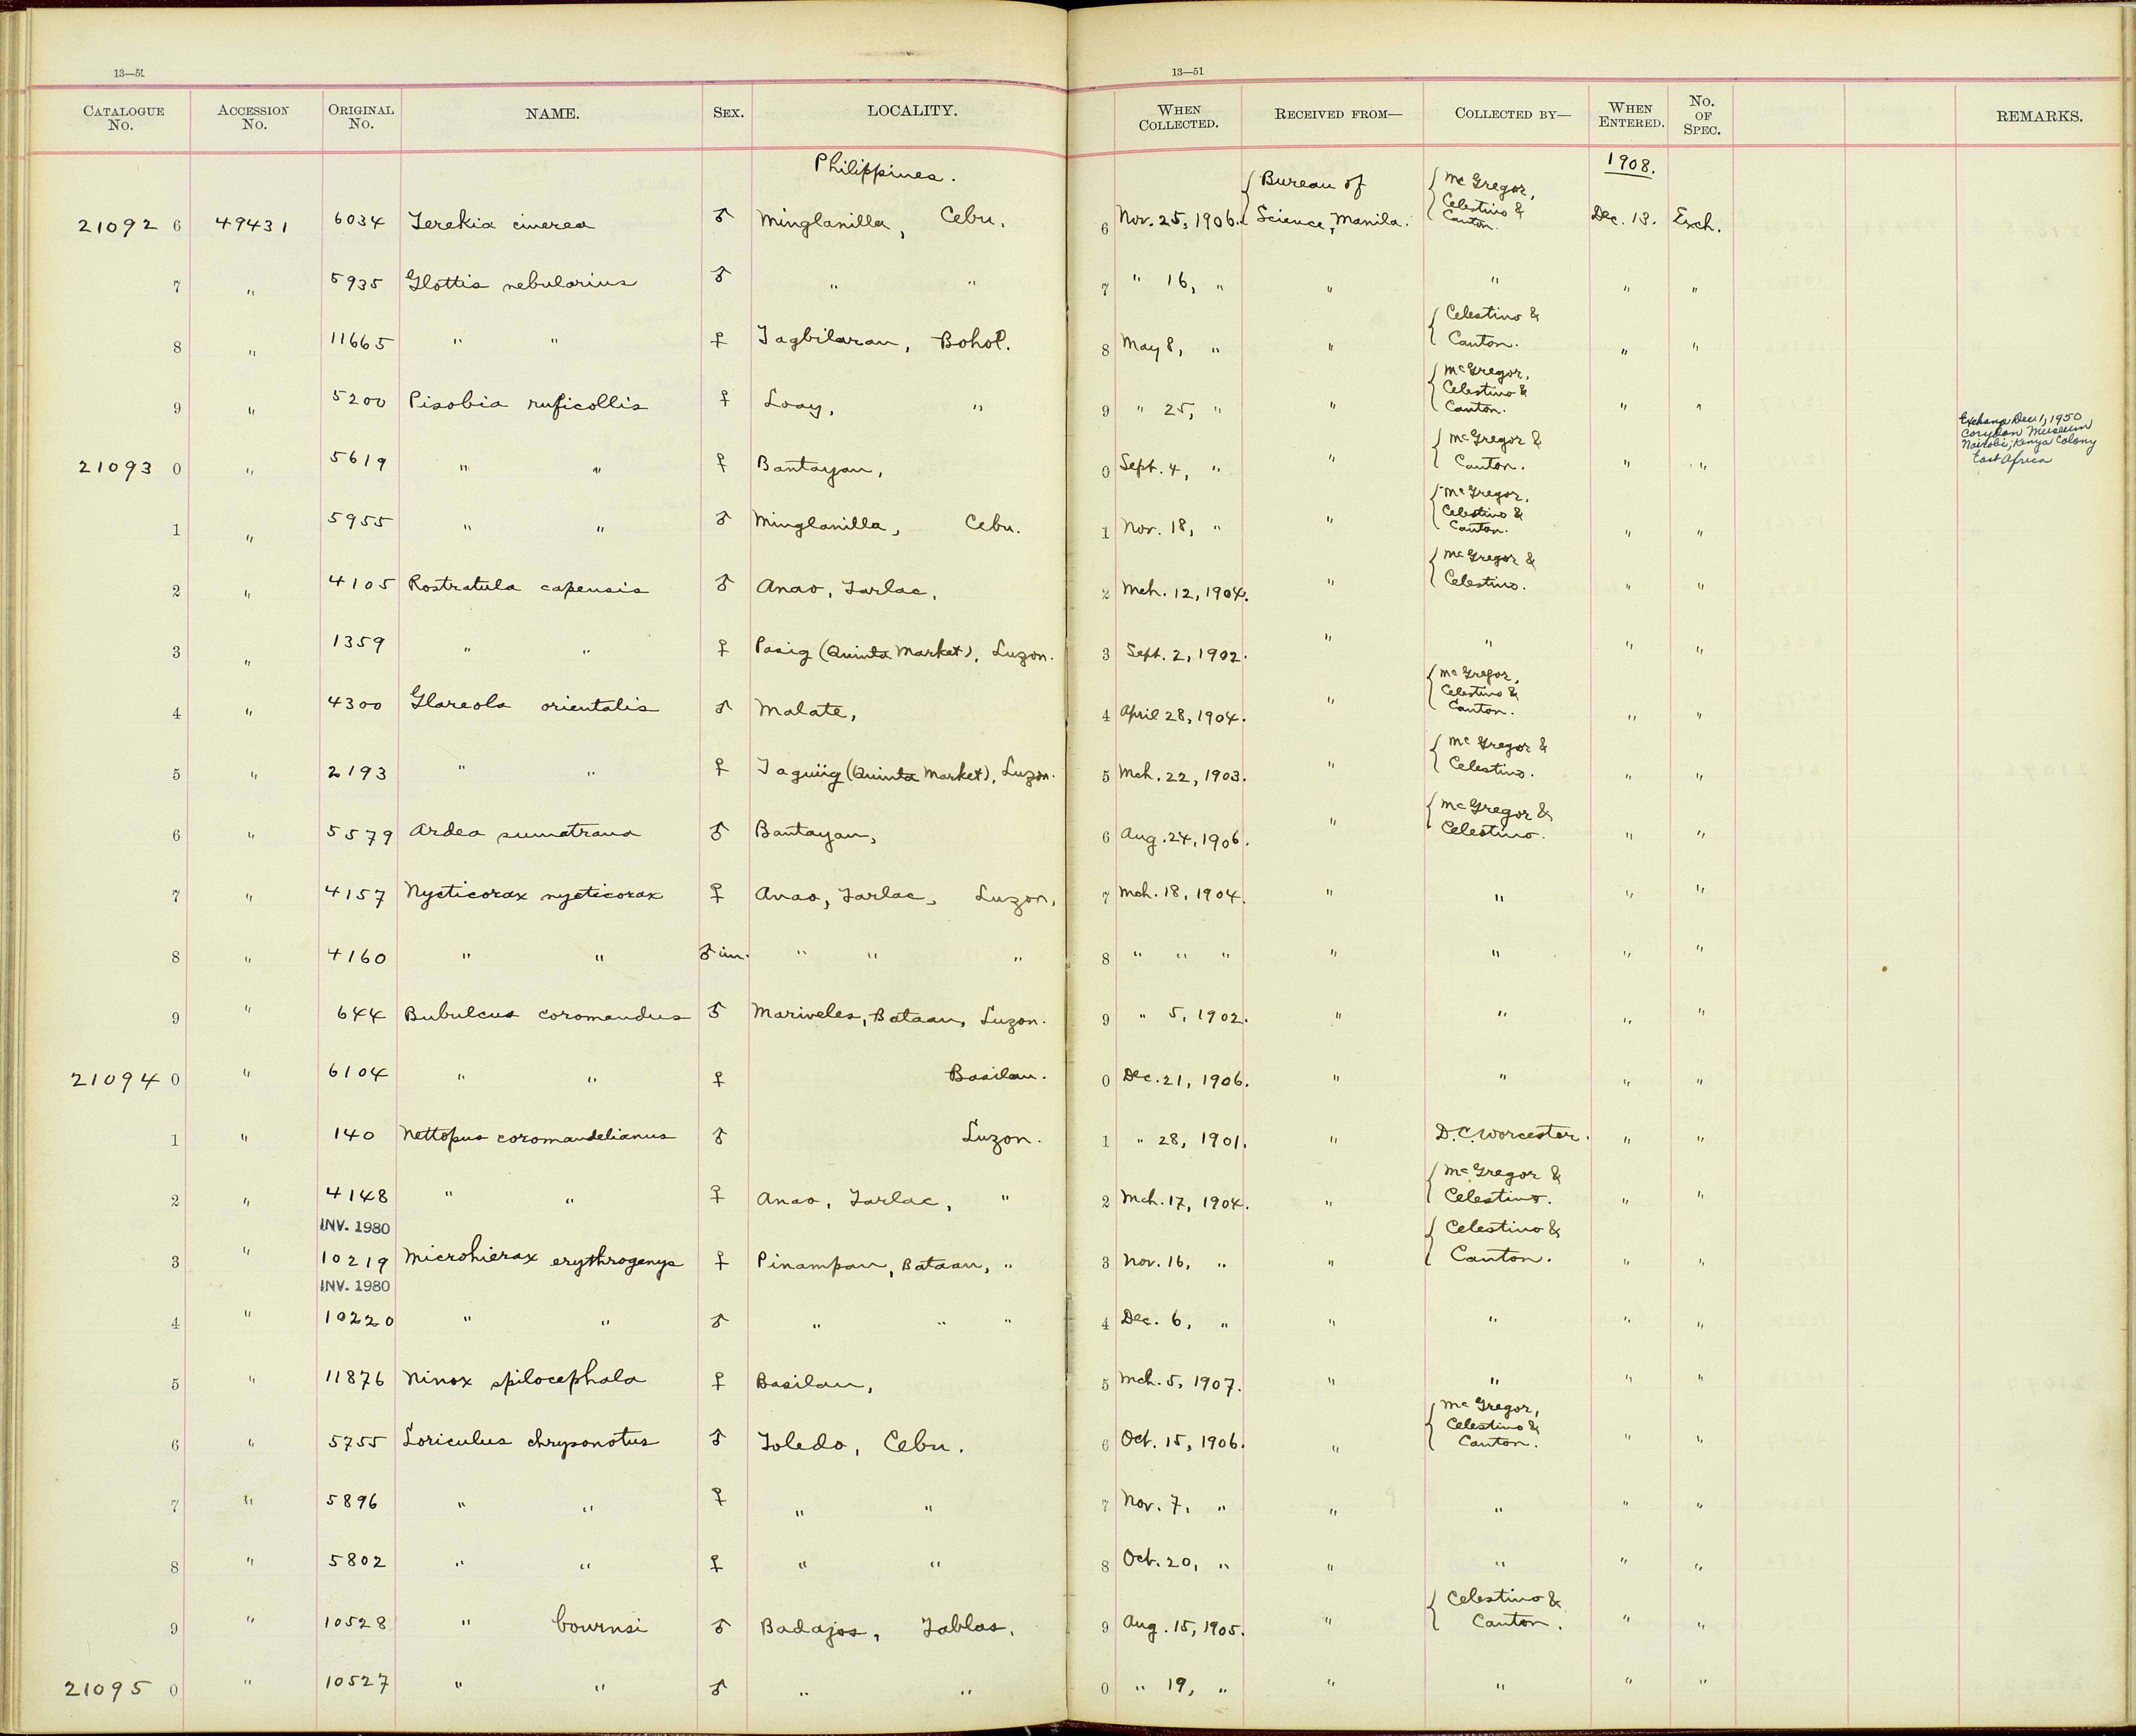 13—51
13—51
CATALOGUE No. ACCESSION No. ORIGINAL No. NAME. SEX. LOCALITY. WHEN COLLECTED. RECEIVED FROM— COLLECTED BY— WHEN ENTERED. No. OF SPEC. REMARKS.
Philippines. 1908.
21092 6 49431 6034 Terekia cinerea ♂ Minglanilla, Cebu. 6 Nov. 25, 1906. { Bureau of Science, Manila. { McGregor, Celestino & Canton. Dec. 13. Exch.
7 " 5935 Glottis nebularius ♂ " " 7 " 16, " " " " "
8 " 11665 " " ♀ Tagbilaran, Bohol. 8 May 8, " " { Celestino & Canton. " "
9 " 5200 Pisobia ruficollis ♀ Loay, " 9 " 25, " " { McGregor, Celestino & Canton. " "
21093 0 " 5619 " " ♀ Bantayan, 0 Sept. 4, " " { McGregor & Canton. " " Exchange Dec. 1, 1950
Coryndon Museum
Nairobi; Kenya Colony
East Africa
1 " 5955 " " ♂ Minglanilla, Cebu. 1 Nov. 18, " " { McGregor, Celestino & Canton. " "
2 " 4105 Rostratula capensis ♂ Anao, Tarlac, 2 Mch. 12, 1904. " { McGregor & Celestino. " "
3 " 1359 " " ♀ Pasig (Quinta Market), Luzon. 3 Sept. 2, 1902. " " " "
4 " 4300 Glareola orientalis ♂ Malate, 4 April 28, 1904. " { McGregor, Celestino & Canton. " "
5 " 2193 " " ♀ Taguiig (Quinta Market), Luzon. 5 Mch. 22, 1903. " { McGregor & Celestino. " "
6 " 5579 Ardea sumatrana ♂ Bantayan, 6 Aug. 24, 1906. " { McGregor & Celestino. " "
7 " 4157 Nycticorax nycticorax ♀ Anao, Tarlac, Luzon, 7 Mch. 18, 1904. " " " "
8 " 4160 " " ♂ im. " " " 8 " " " " " " "
9 " 644 Bubulcus coromandus ♂ Mariveles, Bataan, Luzon. 9 " 5, 1902. " " " "
21094 0 " 6104 " " ♀ Basilan. 0 Dec. 21, 1906. " " " "
1 " 140 Nettopus coromandelianus ♂ Luzon. 1 " 28, 1901. " D. C. Worcester. " "
2 " 4148 " " ♀ Anao, Tarlac, " 2 Mch. 17, 1904. " { McGregor & Celestino. " "
INV. 1980
3 " 10219 Microhierax erythrogenys ♀ Pinampan, Bataan, " 3 Nov. 16, " " { Celestino & Canton. " "
INV. 1980
4 " 10220 " " ♂ " " " 4 Dec. 6, " " " " "
5 " 11876 Ninox spilocephala ♀ Basilan, 5 Mch. 5, 1907. " " " "
6 " 5755 Loriculus chrysonotus ♂ Toledo, Cebu. 6 Oct. 15, 1906. " { McGregor, Celestino & Canton. " "
7 " 5896 " " ♀ " " 7 Nov. 7, " " " " "
8 " 5802 " " ♀ " " 8 Oct. 20, " " " " "
9 " 10528 " bournsi ♂ Badajos, Tablas. 9 Aug. 15, 1905. " { Celestino & Canton. " "
21095 0 " 10527 " " ♂ " " 0 " 19, " " " " "